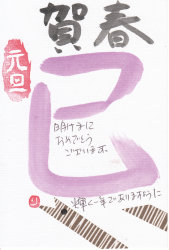 賀春
元旦
巳
明けまして
おめでとう
ございます。
輝く一年でありますように